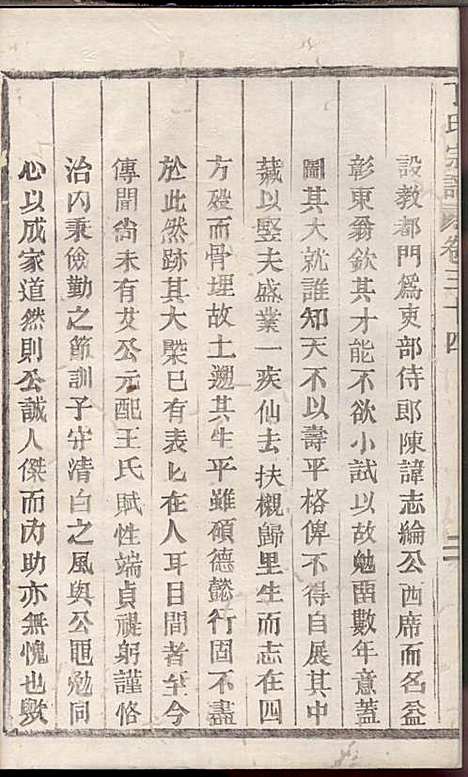 丁氏宗譜 卷三十四 二
設教都門爲吏部侍郎陳諱志綸公西席而名益
彰東翁欽其才能不欲小試以故勉畱數年意蓋
圖其大就誰知天不以壽平格俾不得自展其中
藏以竪夫盛業一疾仙去扶櫬歸里生而志在四
方殁而骨埋故土遡其生平雖碩德懿行固不盡
於此然跡其大槩已有表匕在人耳目間者至今
傳聞尚未有艾公元配王氏賦性端貞禔躬謹恪
治内秉儉勤之節訓子守清白之風與公黽勉同
心以成家道然則公誠人傑而内助亦無愧也歟